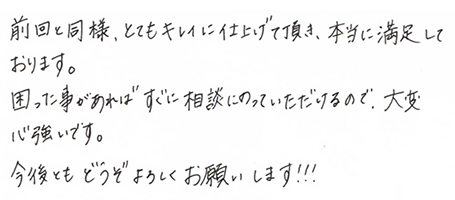 前回と同様、とてもキレイに仕上げて頂き、本当に満足して
おります。
困った事があればすぐに相談にのっていただけるので、大変
心強いです。
今後ともどうぞよろしくお願いします!!!